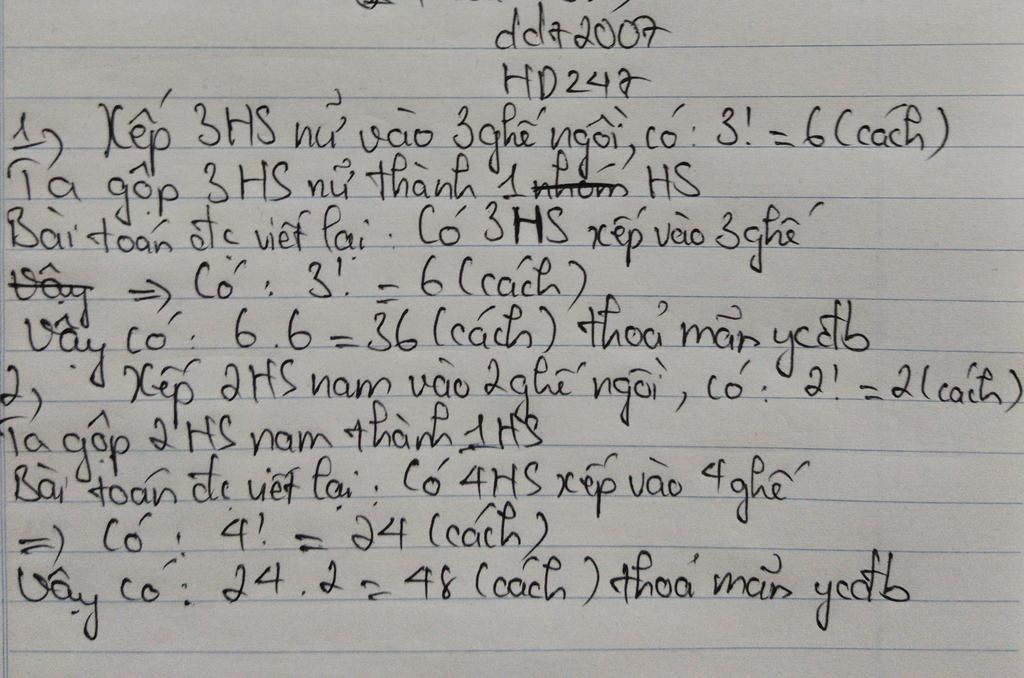 ddt2007
HD247
1, Xếp 3HS nữ vào 3ghế ngồi, có: 3! = 6 (cách)
Ta gộp 3HS nữ thành 1 nhóm HS
Bài toán đc viết lại: Có 3HS xếp vào 3ghế
Vậy => Có: 3! = 6 (cách)
Vậy có: 6.6 = 36 (cách) thoả mãn ycđb
2, Xếp 2HS nam vào 2ghế ngồi, có: 2! = 2 (cách)
Ta gộp 2HS nam thành 1HS
Bài toán đc viết lại: Có 4HS xếp vào 4ghế
=> Có: 4! = 24 (cách)
Vậy có: 24.2 = 48 (cách) thoả mãn ycđb